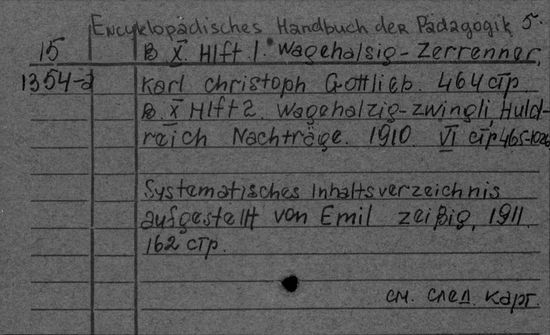 Encyklopädisches Handbuch der Pädagogik 5.
15 B X. Hlft.1. Wagehalsig-Zerrenner,
1354-a Karl Christoph Gottlieb. 464 стр
B. X Hlft 2. Wagehalzig-Zwingli, Huld-
reich Nachträge. 1910. VI стр 465-1026
Systematisches Inhaltsverzeichnis
aufgestellt von Emil Zeißig, 1911.
162 стр.
см. след. карт.